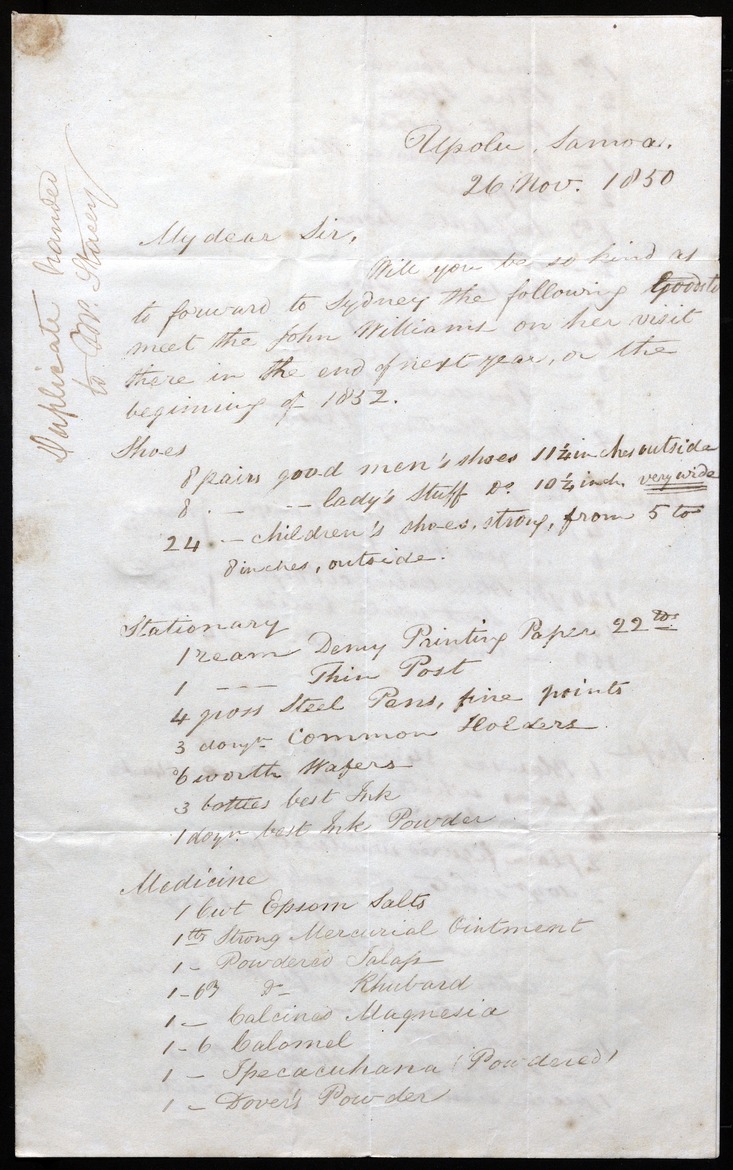 Upolu, Samoa.
26 Nov. 1850
Duplicate handed
to Mr. Stacey
My dear Sir,
Will you be so kind as
to forward to Sydney the following Goods to
meet the John Williams on her visit
there in the end of next year, or the
beginning of 1852.
Shoes
8 pairs good men's shoes 11 1/4 inches outside
8 . — — lady's stuff Do. 10 1/4 inch. very wide
24 . — children's shoes, strong, from 5 to
8 inches, outside.
Stationary
1 ream Demy Printing Paper 22 lbs
1 — — Thin Post
4 gross Steel Pens, fine points
3 dozn. Common Holders
6 worth Wafers
3 bottles best Ink
1 dozn. best Ink Powder
Medicine
1 Cwt Epsom Salts
1 lb Strong Mercurial Ointment
1 - Powdered Jalap
1 - 6 Do Rhubard
1 — Calcined Magnesia
1 - 6 Calomel
1 — Ipecacuhana (Powdered)
1 — Dover's Powder